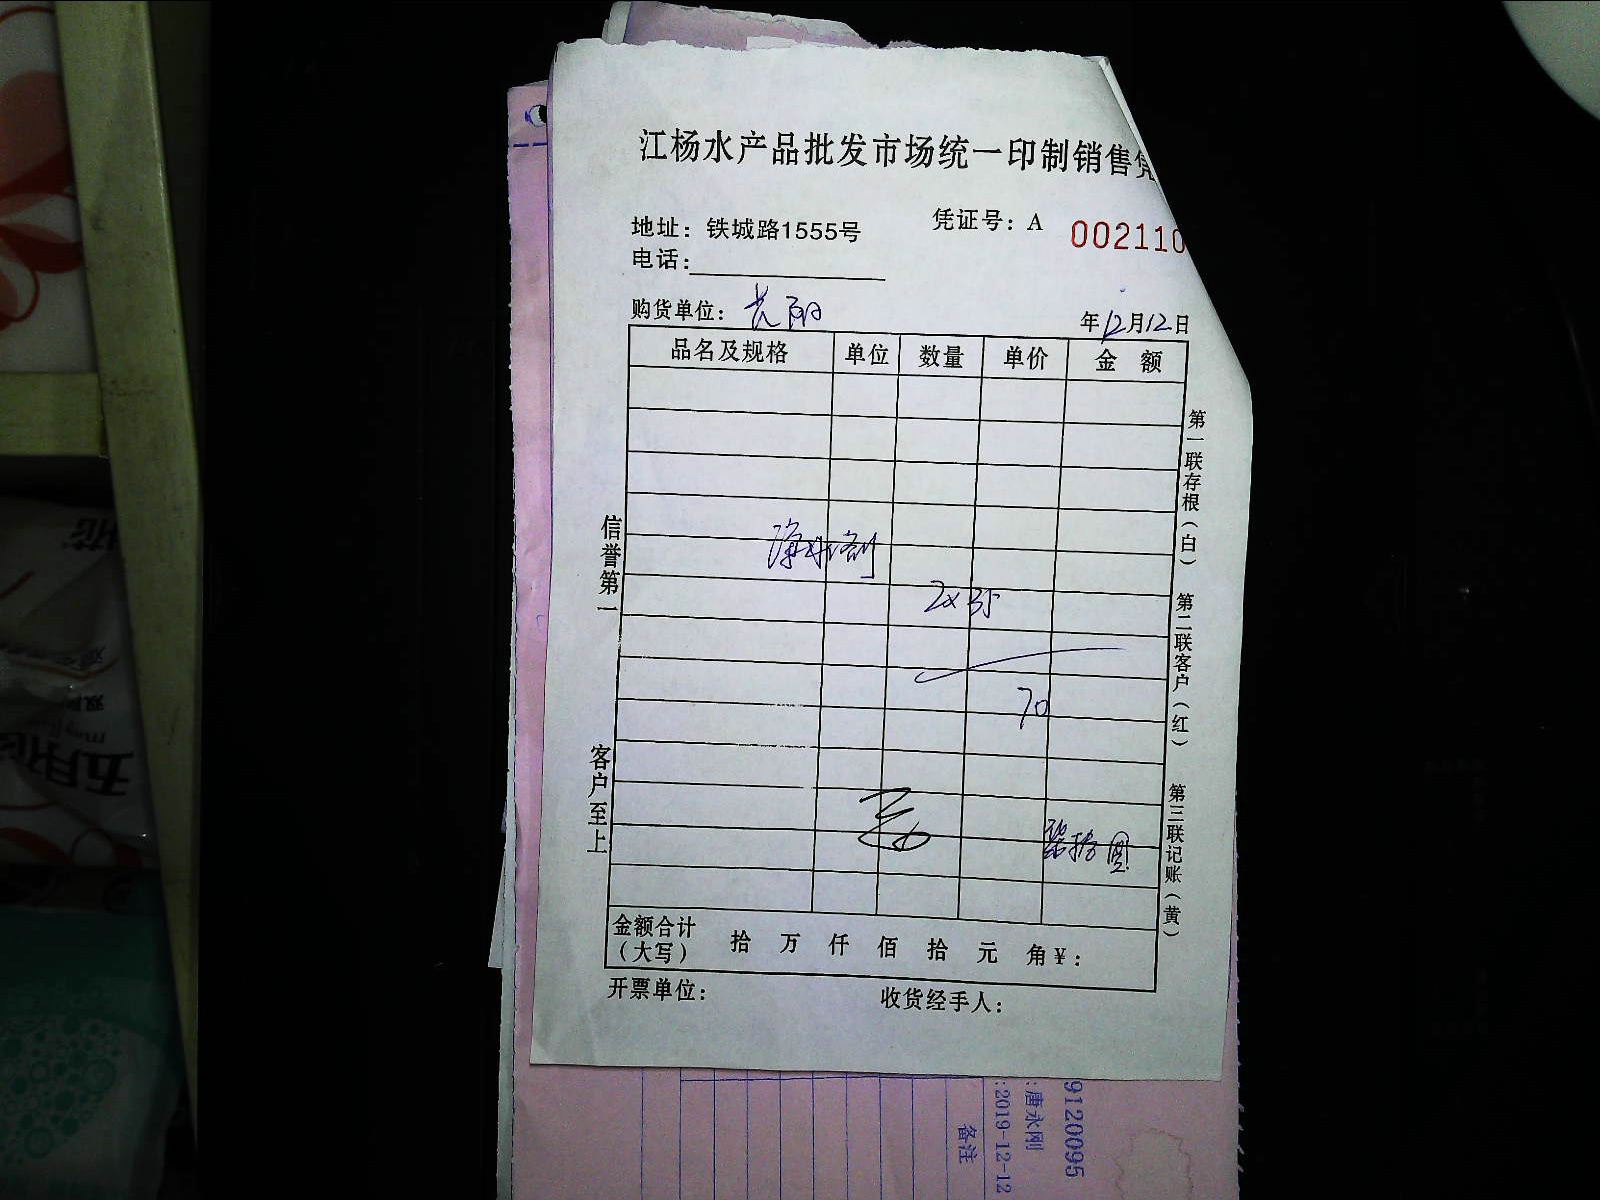 江杨水产品批发市场统一印制销售凭
地址：铁城路1555号
凭证号：A 002110
电话：
购货单位：
年12月12日
品名及规格 单位 数量 单价 金 额
2×35
70
柒拾圆
金额合计（大写） 拾 万 仟 佰 拾 元 角 ¥：
开票单位： 收货经手人：
信誉第一 客户至上
第一联存根（白） 第二联客户（红） 第三联记账（黄）
9120095
:唐永刚
:2019-12-12
备注
五月花